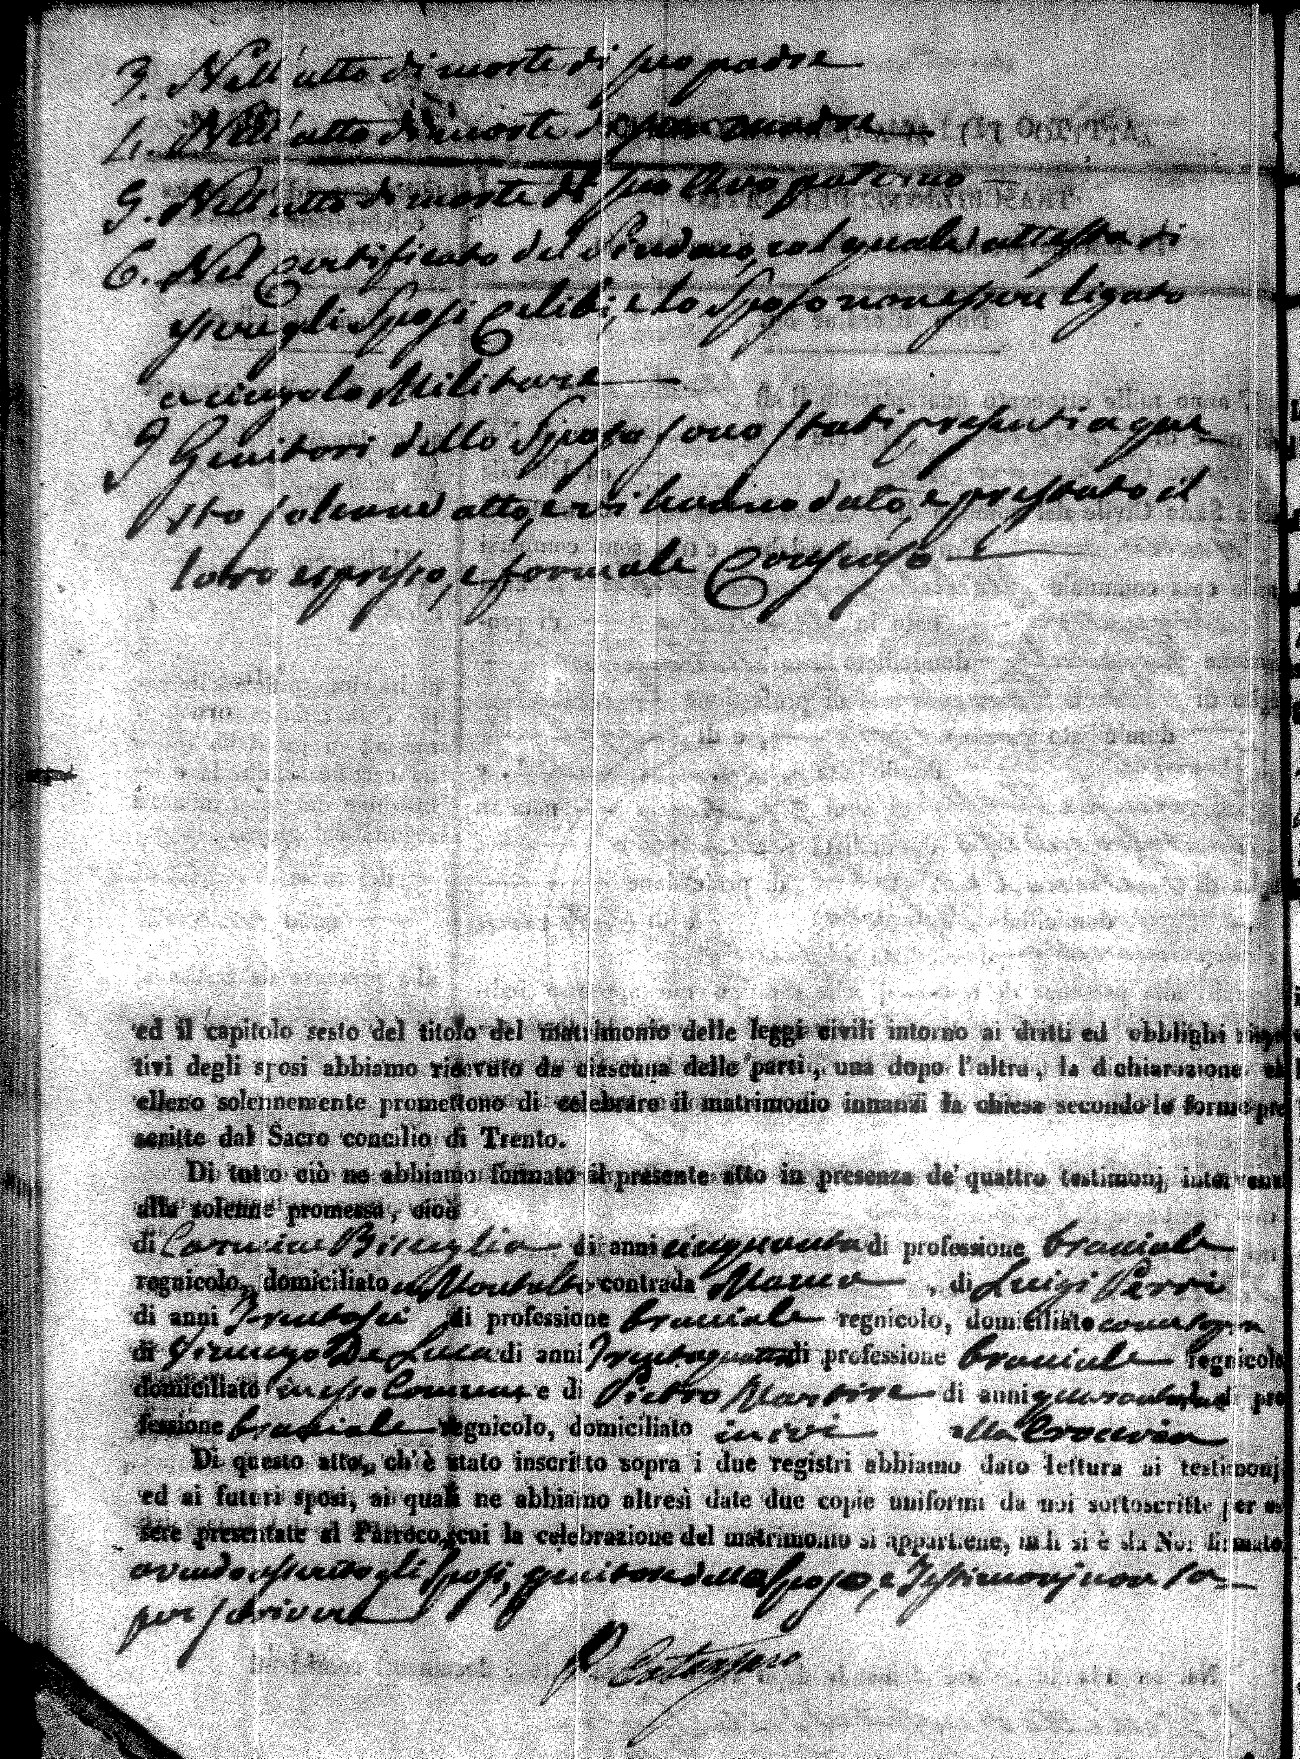 3. Nell'atto di morte di suo padre
4. Nell'atto di morte di sua madre
5. Nell'atto di morte del suo Avo paterno
6. Nel Certificato del Sindaco, col quale attesta di
essere gli Sposi Celibi, e lo Sposo non essere ligato
a cingolo Militare
I Genitori dello Sposa sono stati presenti a que
sto solenne atto, e vi hanno dato, e prestato il
loro espresso, e formale Consenso
ed il capitolo sesto del titolo del matrimonio delle leggi civili intorno ai dritti ed obblighi
tivi degli sposi abbiamo ricevuto da ciascuna delle parti, una dopo l'altra, la dichiarazione
elleno solennemente promettono di celebrare il matrimonio innanzi la chiesa secondo le forme pre
scritte dal Sacro concilio di Trento.
Di tutto ciò ne abbiamo formato il presente atto in presenza de' quattro testimonj
alla solenne promessa, cioè
di Carmine Bisceglia di anni cinquanta di professione bracciale
regnicolo, domiciliato in Montalto contrada , di Luigi Perri
di anni Trentasei di professione bracciale regnicolo, domiciliato come sopra
di De Luca di anni Trentaquattro di professione bracciale regnicolo
domiciliato in esso Comune, e di Pietro Martire di anni di pro
fessione bracciale regnicolo, domiciliato ivi alla
Di questo atto, ch'è stato inscritto sopra i due registri abbiamo dato lettura ai testimonj
ed ai futuri sposi, ai quali ne abbiamo altresì date due copie uniformi da noi sottoscritte per es
sere presentate al Parroco, cui la celebrazione del matrimonio si appartiene, indi si è da Noi firmato,
avendo asserito gli Sposi, genitori dello Sposa, e Testimonj non sa
per scrivere